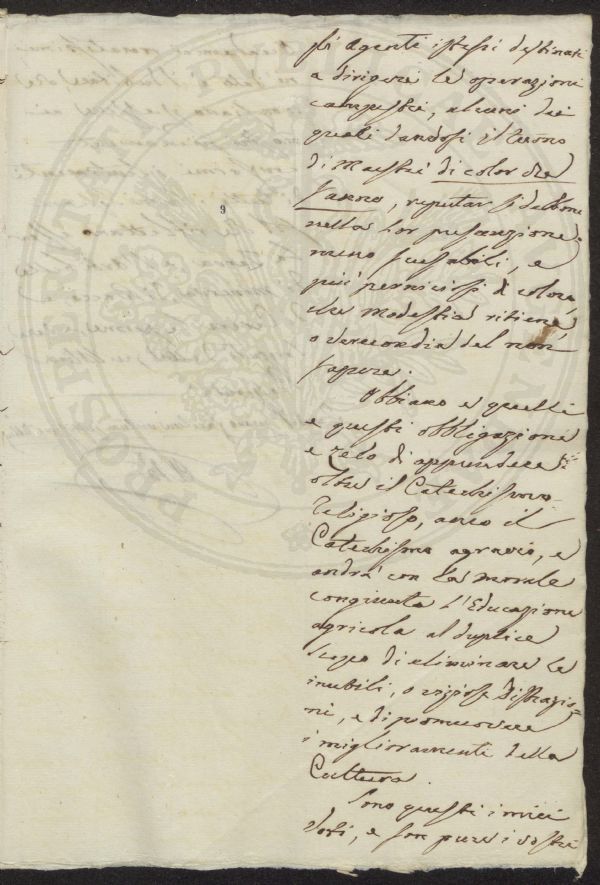 gli agenti istessi destinati
a dirigere le operazioni
campestri, alcuni dei
quali dandosi il tuono
di Maestri di color che
sanno, reputar si debbono
nella lor presunzione
meno scusabili, e
più perniciosi di coloro,
che modestia ritiene,
o verecondia del non
sapere.
Abbiano e quelli
e questi obbligazione
e zelo di apprendere
oltre il Catechismo
religioso, anco il
Catechismo agrario, e
andrà con la morale
congiunta l'Educazione
agricola al duplice
scopo di eliminare le
inutili, o viziose distrazio-
ni, e di promuovere
i miglioramenti della
Cultura.
Sono questi i miei
voti, e son pure i vostri
9
PROSPERITATI PUBLICAE